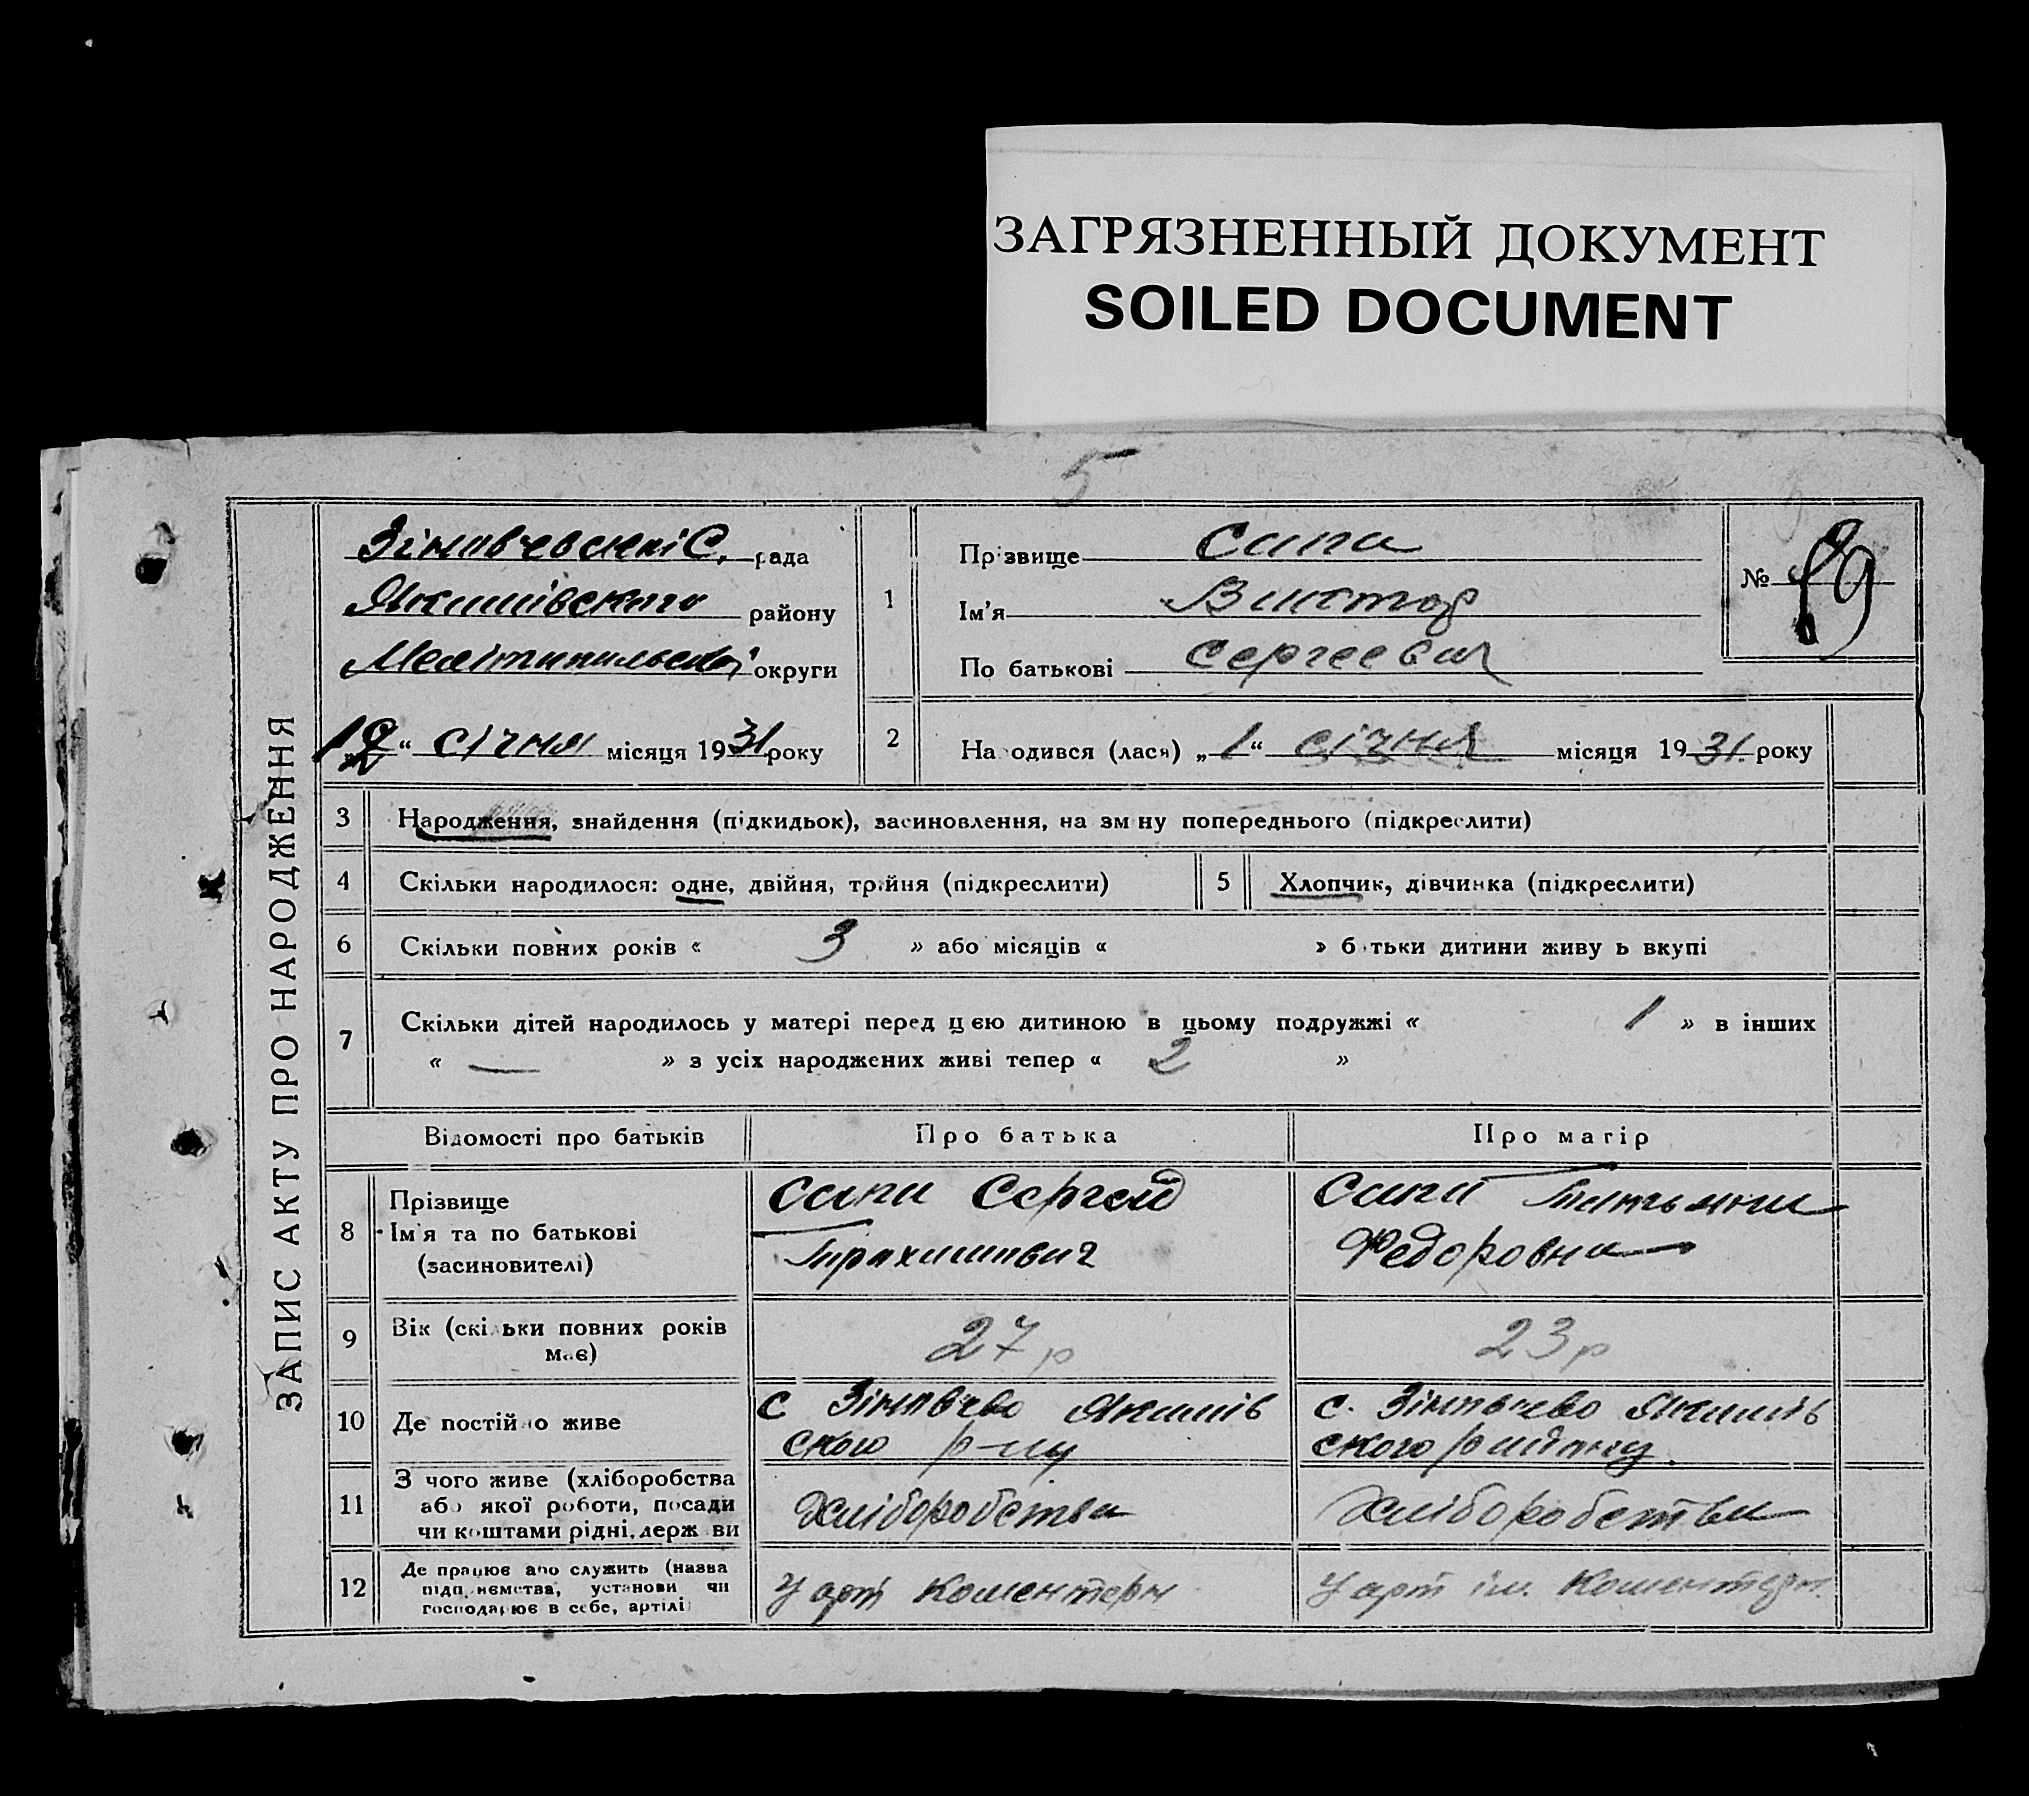 ЗАГРЯЗНЕННЫЙ ДОКУМЕНТ
SOILED DOCUMENT
5
ЗАПИС АКТУ ПРО НАРОДЖЕННЯ
Зіновчевскої С. рада
Якимівского району
Мелітипильскої округи
12 “ січня місяця 1931 року
1
Прізвище Сапа
Ім'я Виктор
По батькові Сергеевич
№
2 Народився (лася) „ 1 “ січня місяця 1931. року
3 Народження, знайдення (підкидьок), засиновлення, на зміну попереднього (підкреслити)
4 Скільки народилося: одне, двійня, трійня (підкреслити)
5 Хлопчик, дівчинка (підкреслити)
6 Скільки повних років « 3 » або місяців « » батьки дитини живуть вкупі
7 Скільки дітей народилось у матері перед цією дитиною в цьому подружжі « 1 » в інших
« — » з усіх народжених живі тепер « 2 »
Відомості про батьків Про батька Про матір
8 Прізвище
Ім'я та по батькові
(засновителі)
Сапа Сергей
Трахимович
Сапа Татьяна
Федоровна
9 Вік (скільки повних років
має)
27 р
23 р
10 Де постійно живе
с Зіновчево Якимів
ского р-ну
с. Зіновчево Якимів
ского району.
11 З чого живе (хліборобства
або якої роботи, посади
чи коштами рідні, держави
Хліборобства
Хліборобства
12 Де працює або служить (назва
підприємства, установи чи
господарює в себе, артілі)
У арт Коментерн
У арт ім. Коментерн.